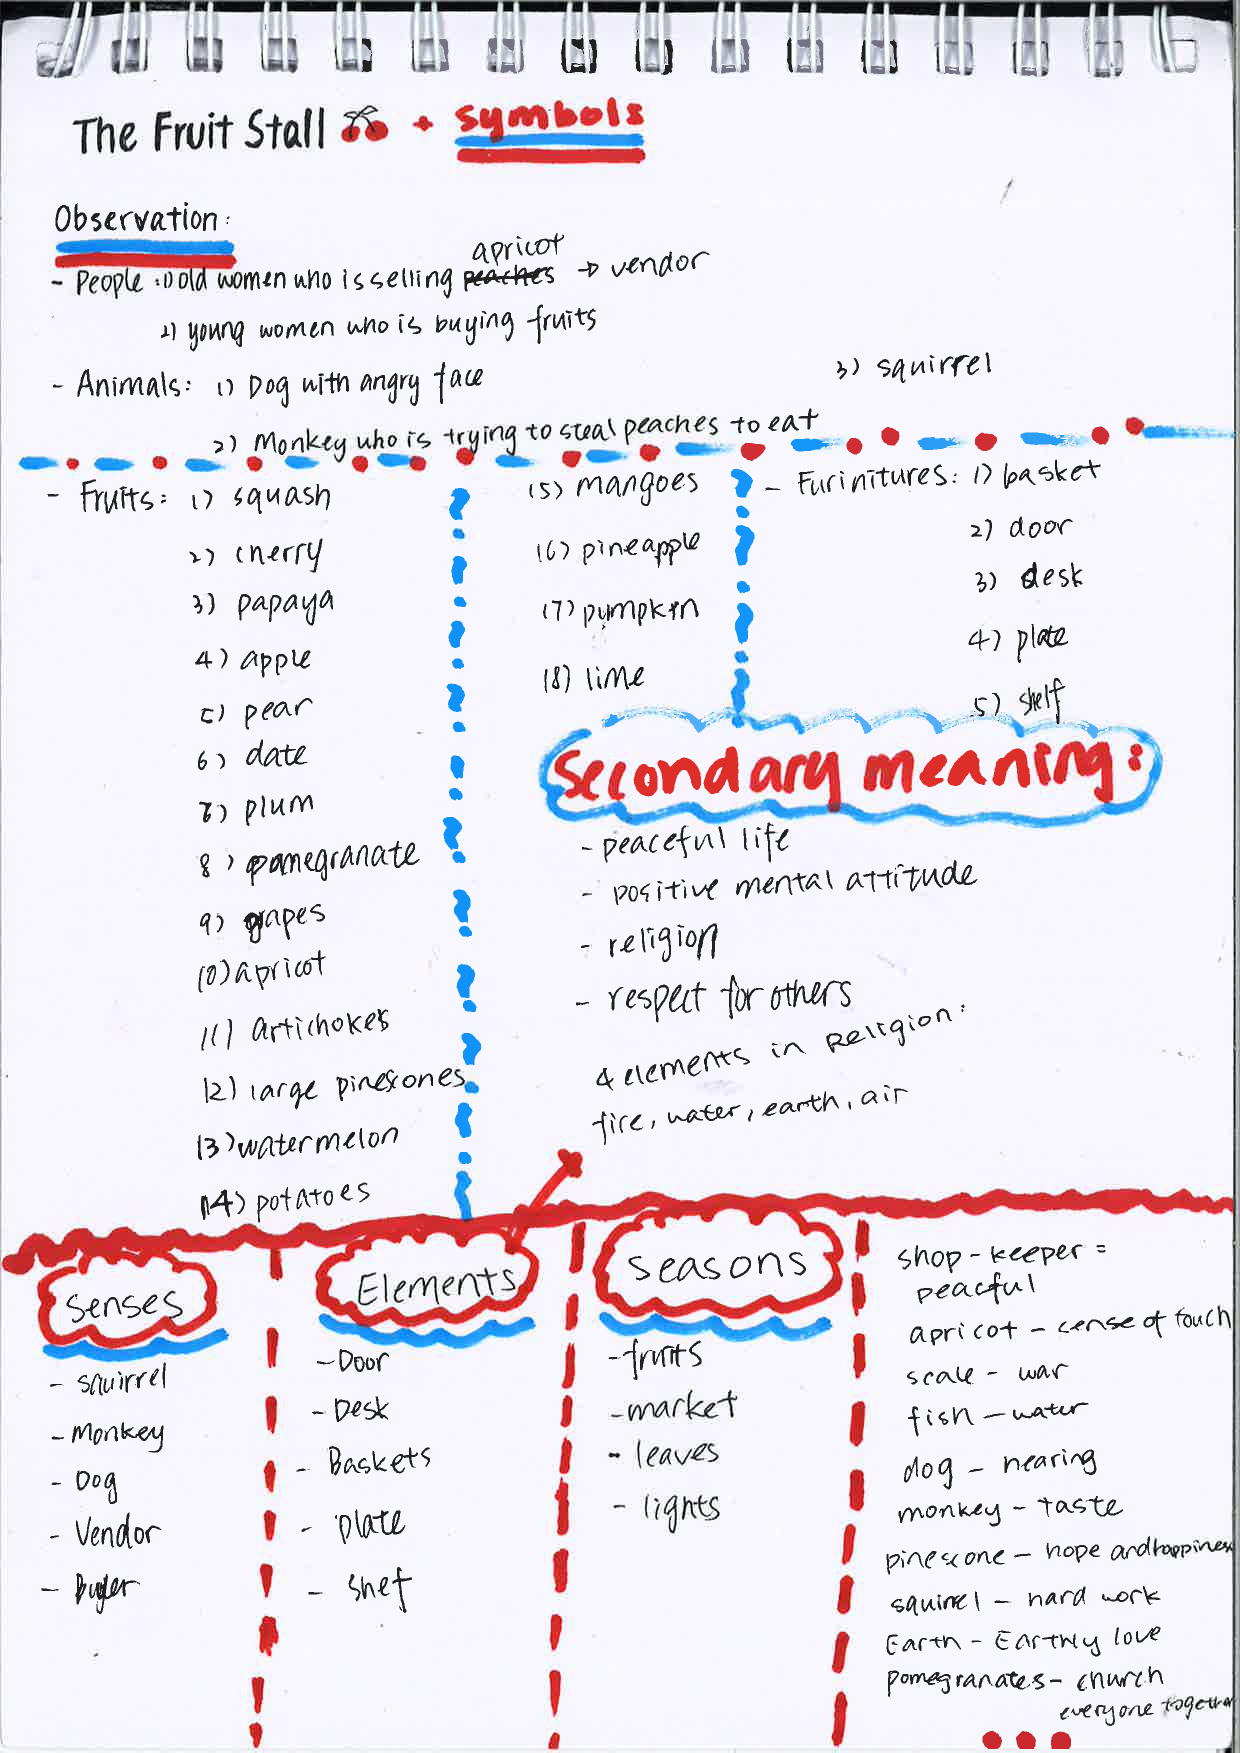 The Fruit Stall + Symbols
Observation:
- People: 1) old women who is selling peaches apricot → vendor
2) young women who is buying fruits
- Animals: 1) Dog with angry face
2) Monkey who is trying to steal peaches to eat
3) squirrel
- Fruits: 1) squash
2) cherry
3) papaya
4) apple
5) pear
6) date
7) plum
8) pomegranate
9) grapes
10) apricot
11) artichokes
12) large pinescones
13) watermelon
14) potatoes
15) mangoes
16) pineapple
17) pumpken
18) lime
- Furinitures: 1) basket
2) door
3) desk
4) plate
5) shelf
Secondary meaning:
- peaceful life
- positive mental attitude
- religion
- respect for others
4 elements in Religion:
fire, water, earth, air
Senses
- squirrel
- Monkey
- Dog
- Vendor
- Buyer
Elements
- Door
- Desk
- Baskets
- plate
- shef
Seasons
- fruits
- market
- leaves
- lights
shop-keeper =
peacful
apricot - sense of touch
scale - war
fish - water
dog - hearing
monkey - taste
pinescone - hope and happiness
squirrel - hard work
Earth - Earthly love
pomegranates - church
everyone together